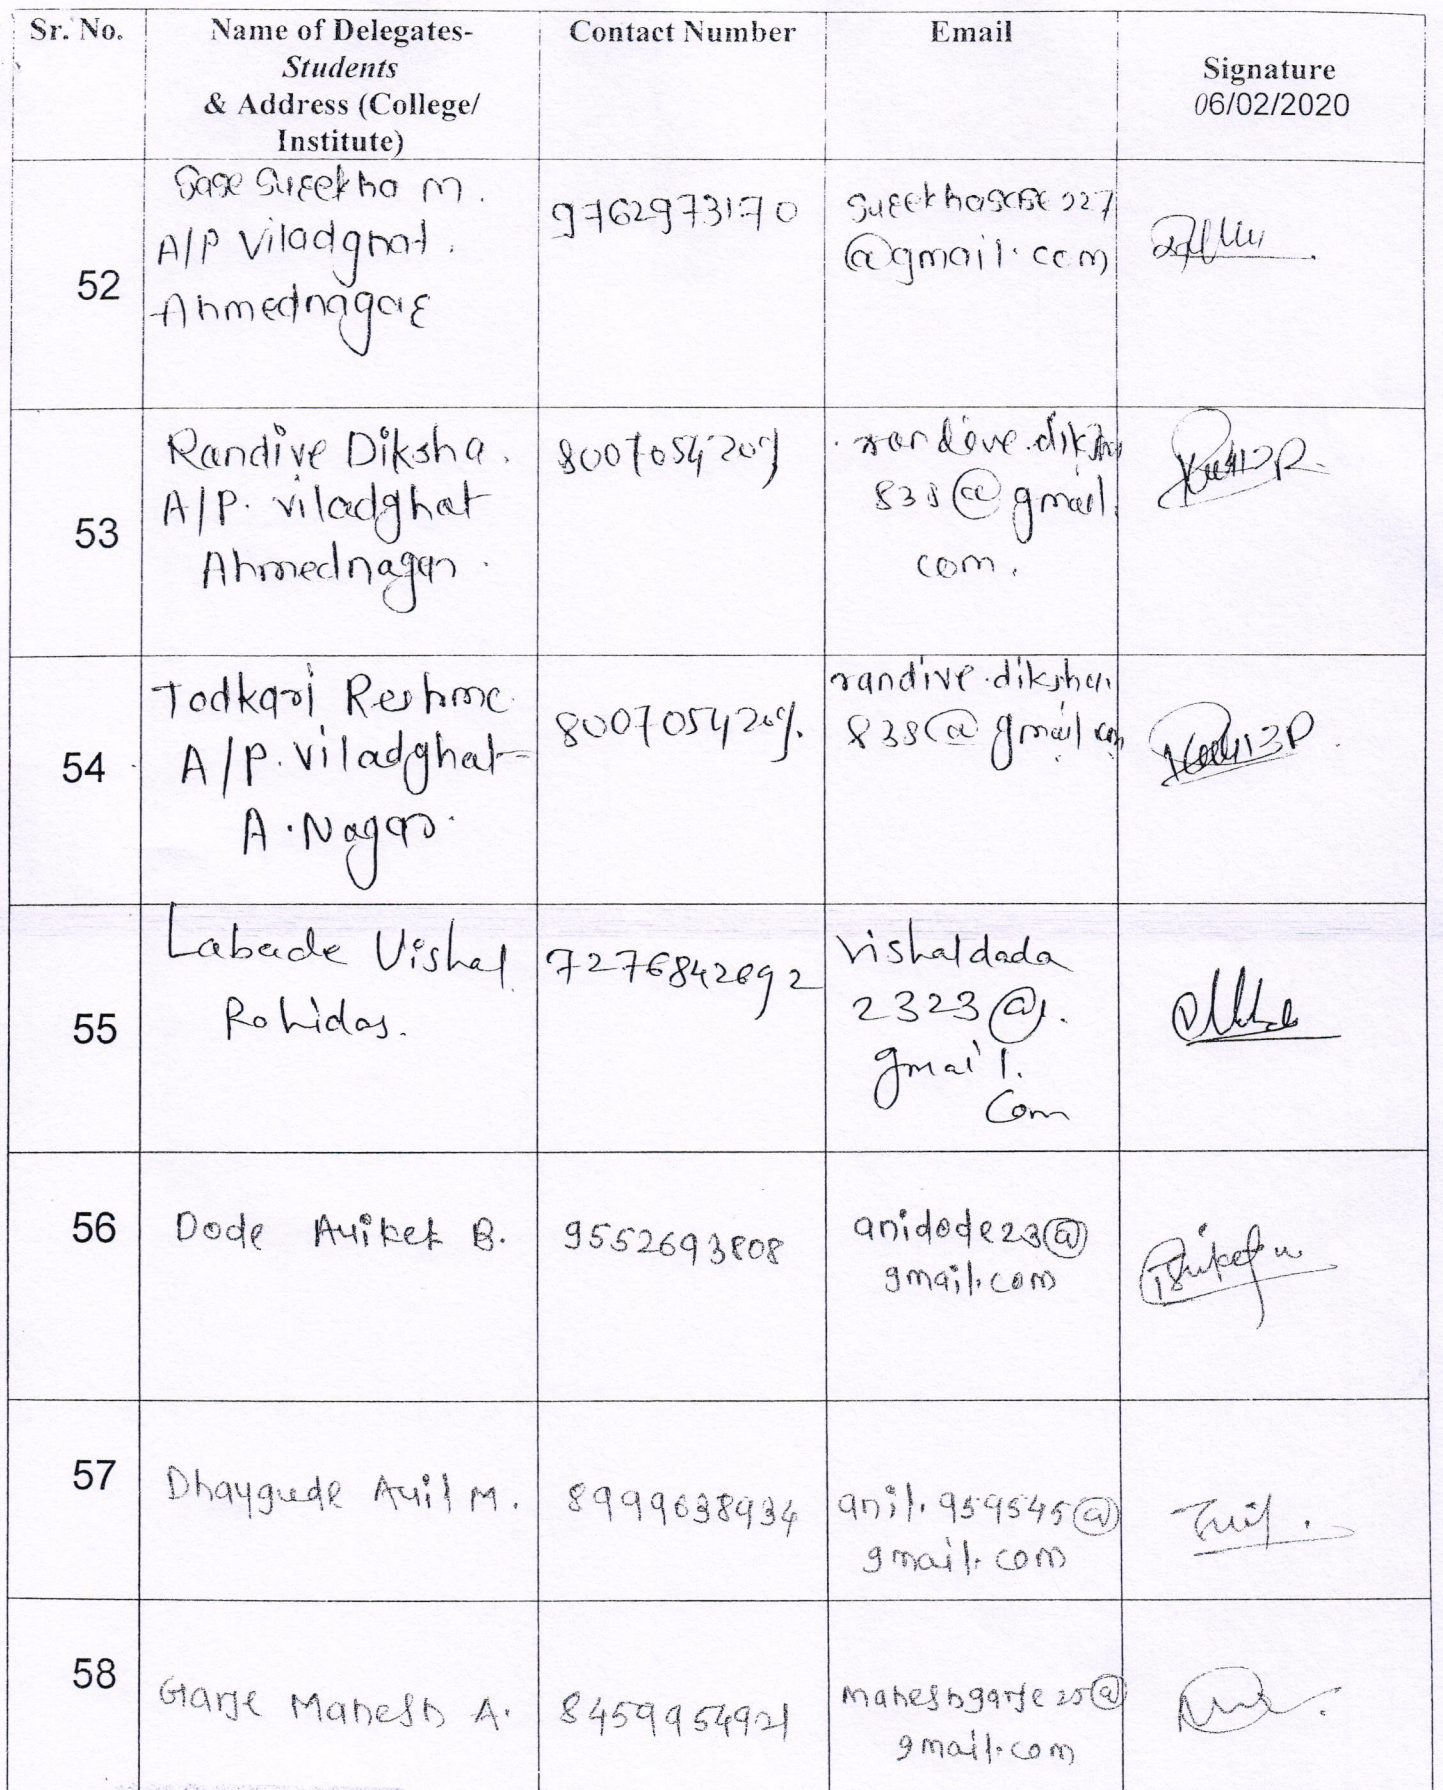 Sr. No.
Name of Delegates-
Students
& Address (College/
Institute)
Contact Number
Email
Signature
06/02/2020
52
Sase Surekha M.
A/P Viladghat.
Ahmednagar
9762973170
surekhasase227
@gmail.com
53
Randive Diksha.
A/P. viladghat
Ahmednagar.
8007054209
randive.diksha
838@gmail.
com.
54
Todkari Reshma
A/P. Viladghat
A.Nagar.
8007054209.
randive.diksha
838@gmail.com
55
Labade Vishal
Rohidas.
7276842692
vishaldada
2323@
gmail.
com
56
Dode Aniket B.
9552693808
anidode23@
gmail.com
57
Dhaygude Anil M.
8999638934
anil.959545@
gmail.com
58
Garje Mahesh A.
8459954921
maheshgarje25@
gmail.com